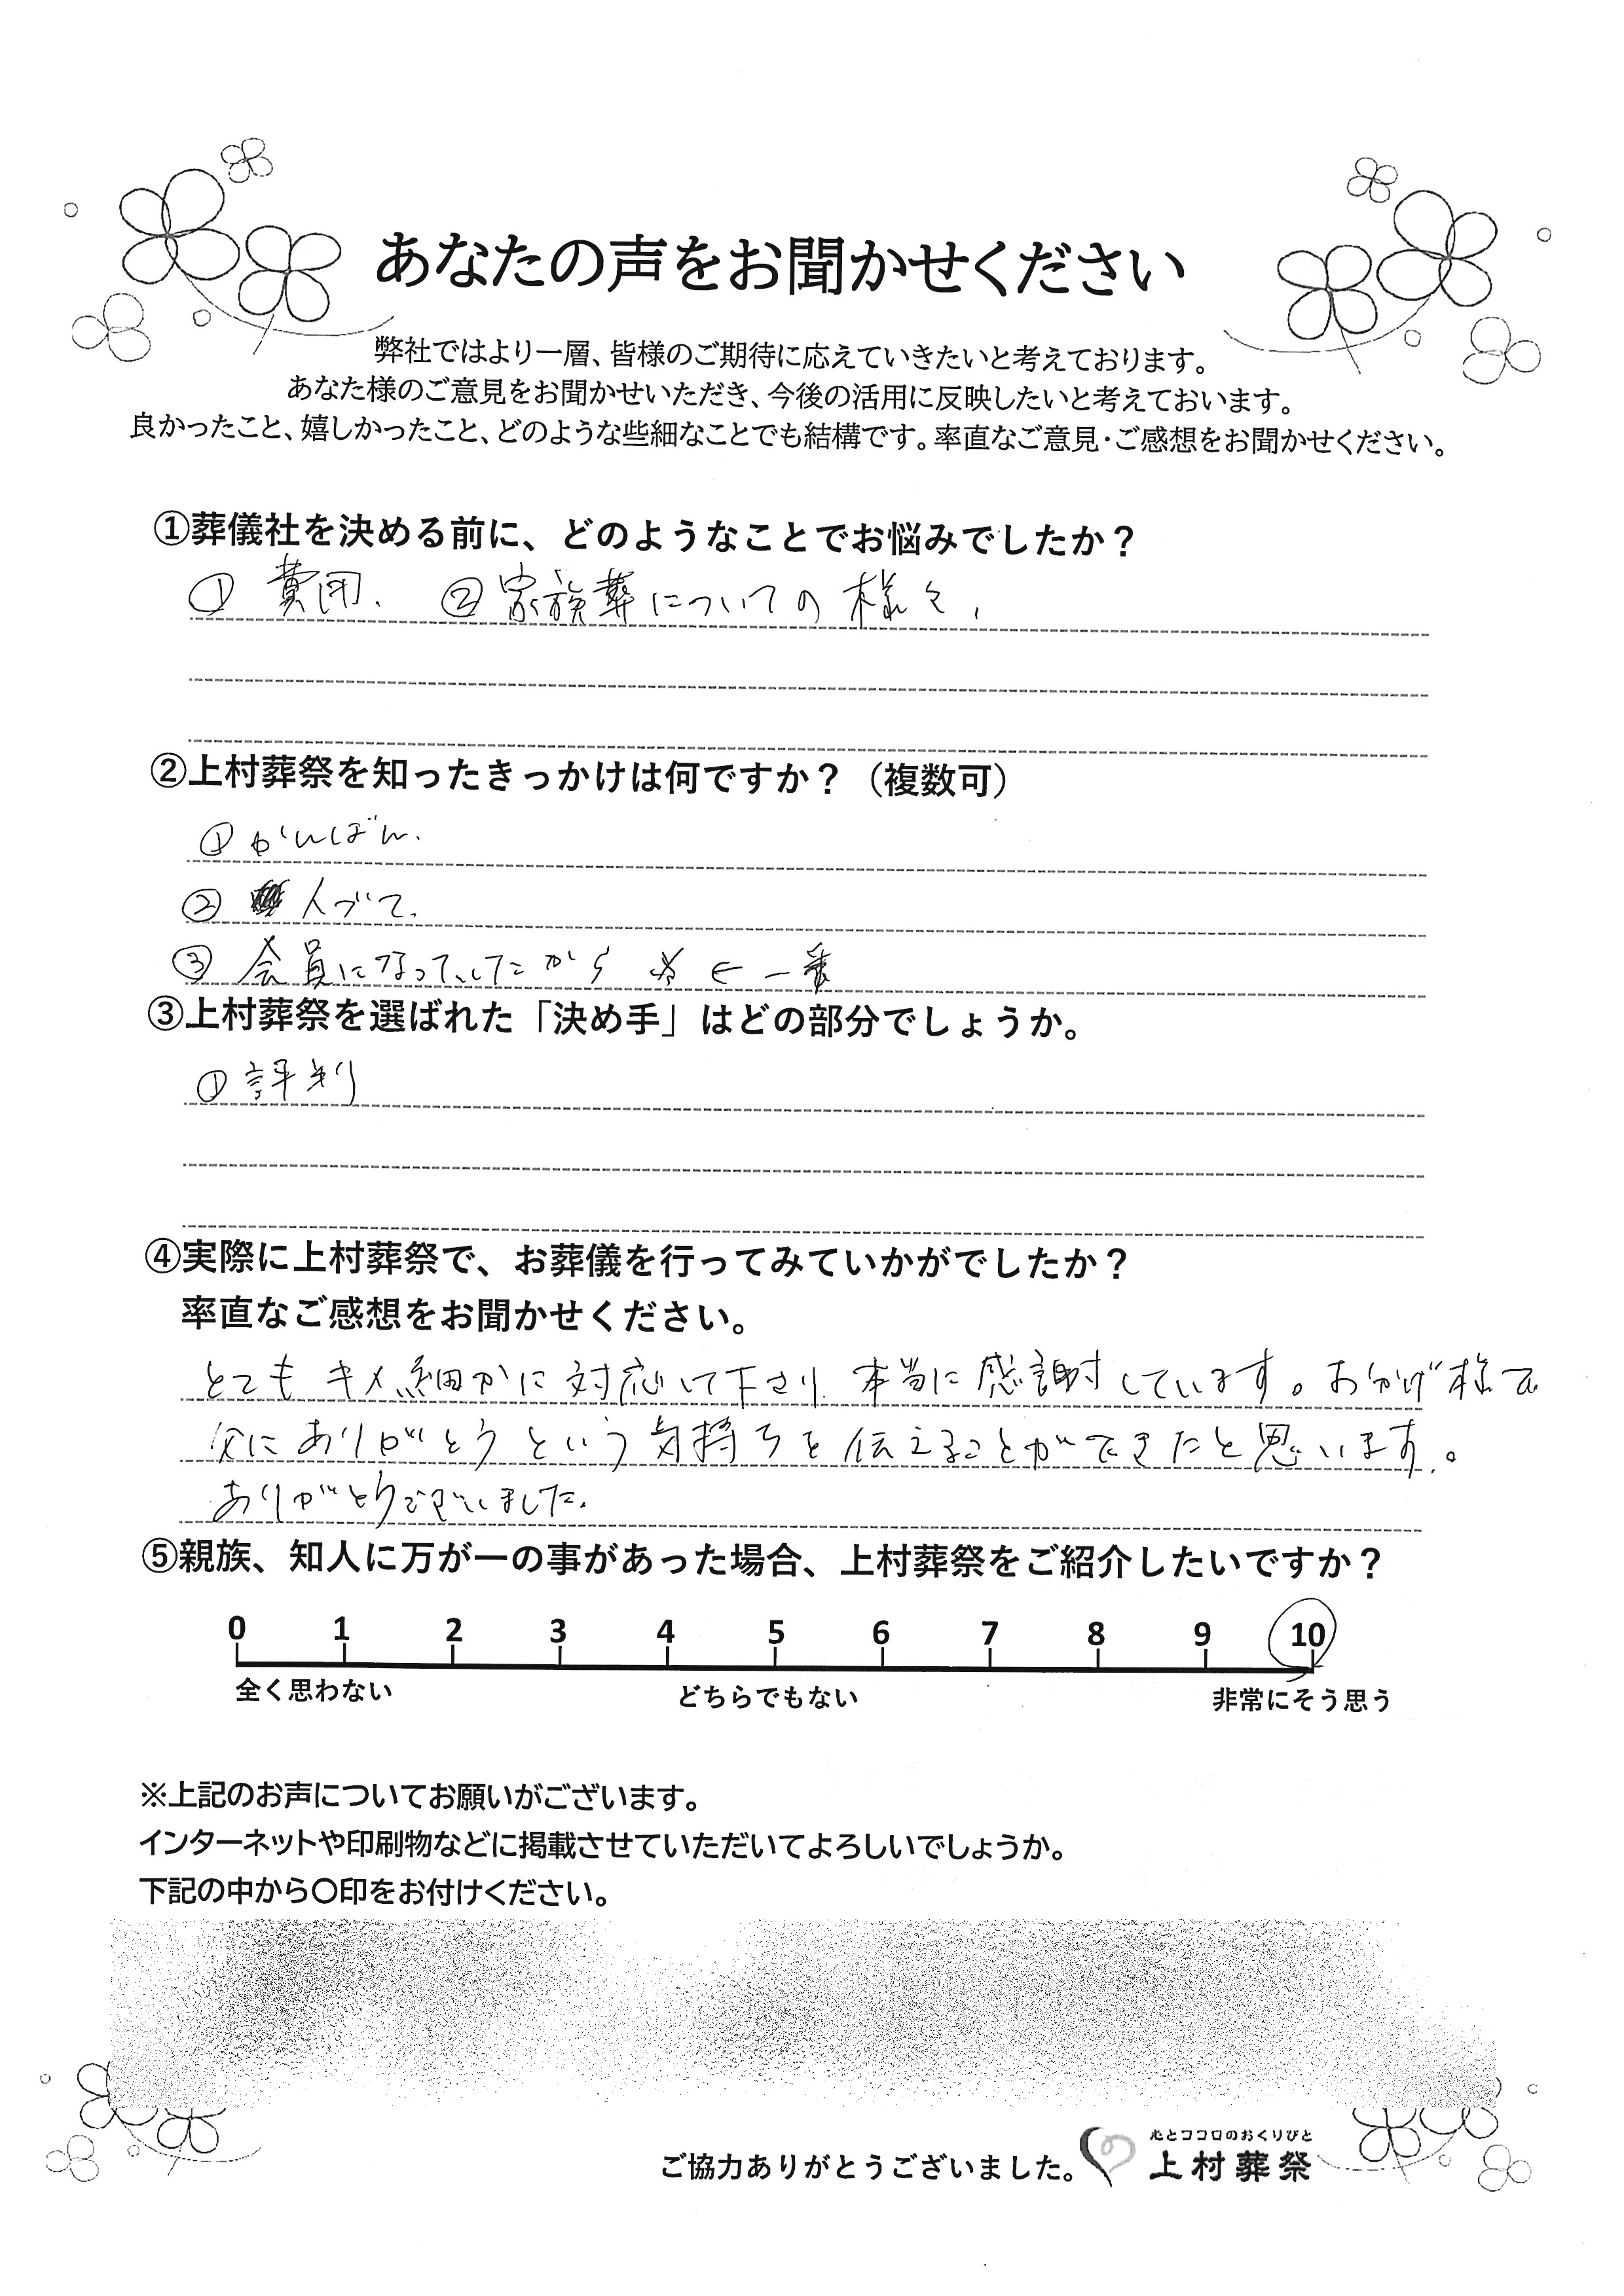 あなたの声をお聞かせください
弊社ではより一層、皆様のご期待に応えていきたいと考えております。
あなた様のご意見をお聞かせいただき、今後の活用に反映したいと考えておいます。
良かったこと、嬉しかったこと、どのような些細なことでも結構です。率直なご意見・ご感想をお聞かせください。
①葬儀社を決める前に、どのようなことでお悩みでしたか？
① 費用. ② 家族葬についての 様々.
②上村葬祭を知ったきっかけは何ですか？（複数可）
① かんばん.
② 人づて.
③ 会員になっていたから ※ ← 一番
③上村葬祭を選ばれた「決め手」はどの部分でしょうか。
① 評判
④実際に上村葬祭で、お葬儀を行ってみていかがでしたか？
率直なご感想をお聞かせください。
とても キメ細かに 対応して下さり 本当に 感謝しています。おかげ様で
父に ありがとう という 気持ちを 伝えることができたと思います。
ありがとうございました.
⑤親族、知人に万が一の事があった場合、上村葬祭をご紹介したいですか？
0 1 2 3 4 5 6 7 8 9 10
全く思わない どちらでもない 非常にそう思う
※上記のお声についてお願いがございます。
インターネットや印刷物などに掲載させていただいてよろしいでしょうか。
下記の中から〇印をお付けください。
心とココロのおくりびと
ご協力ありがとうございました。 上村葬祭